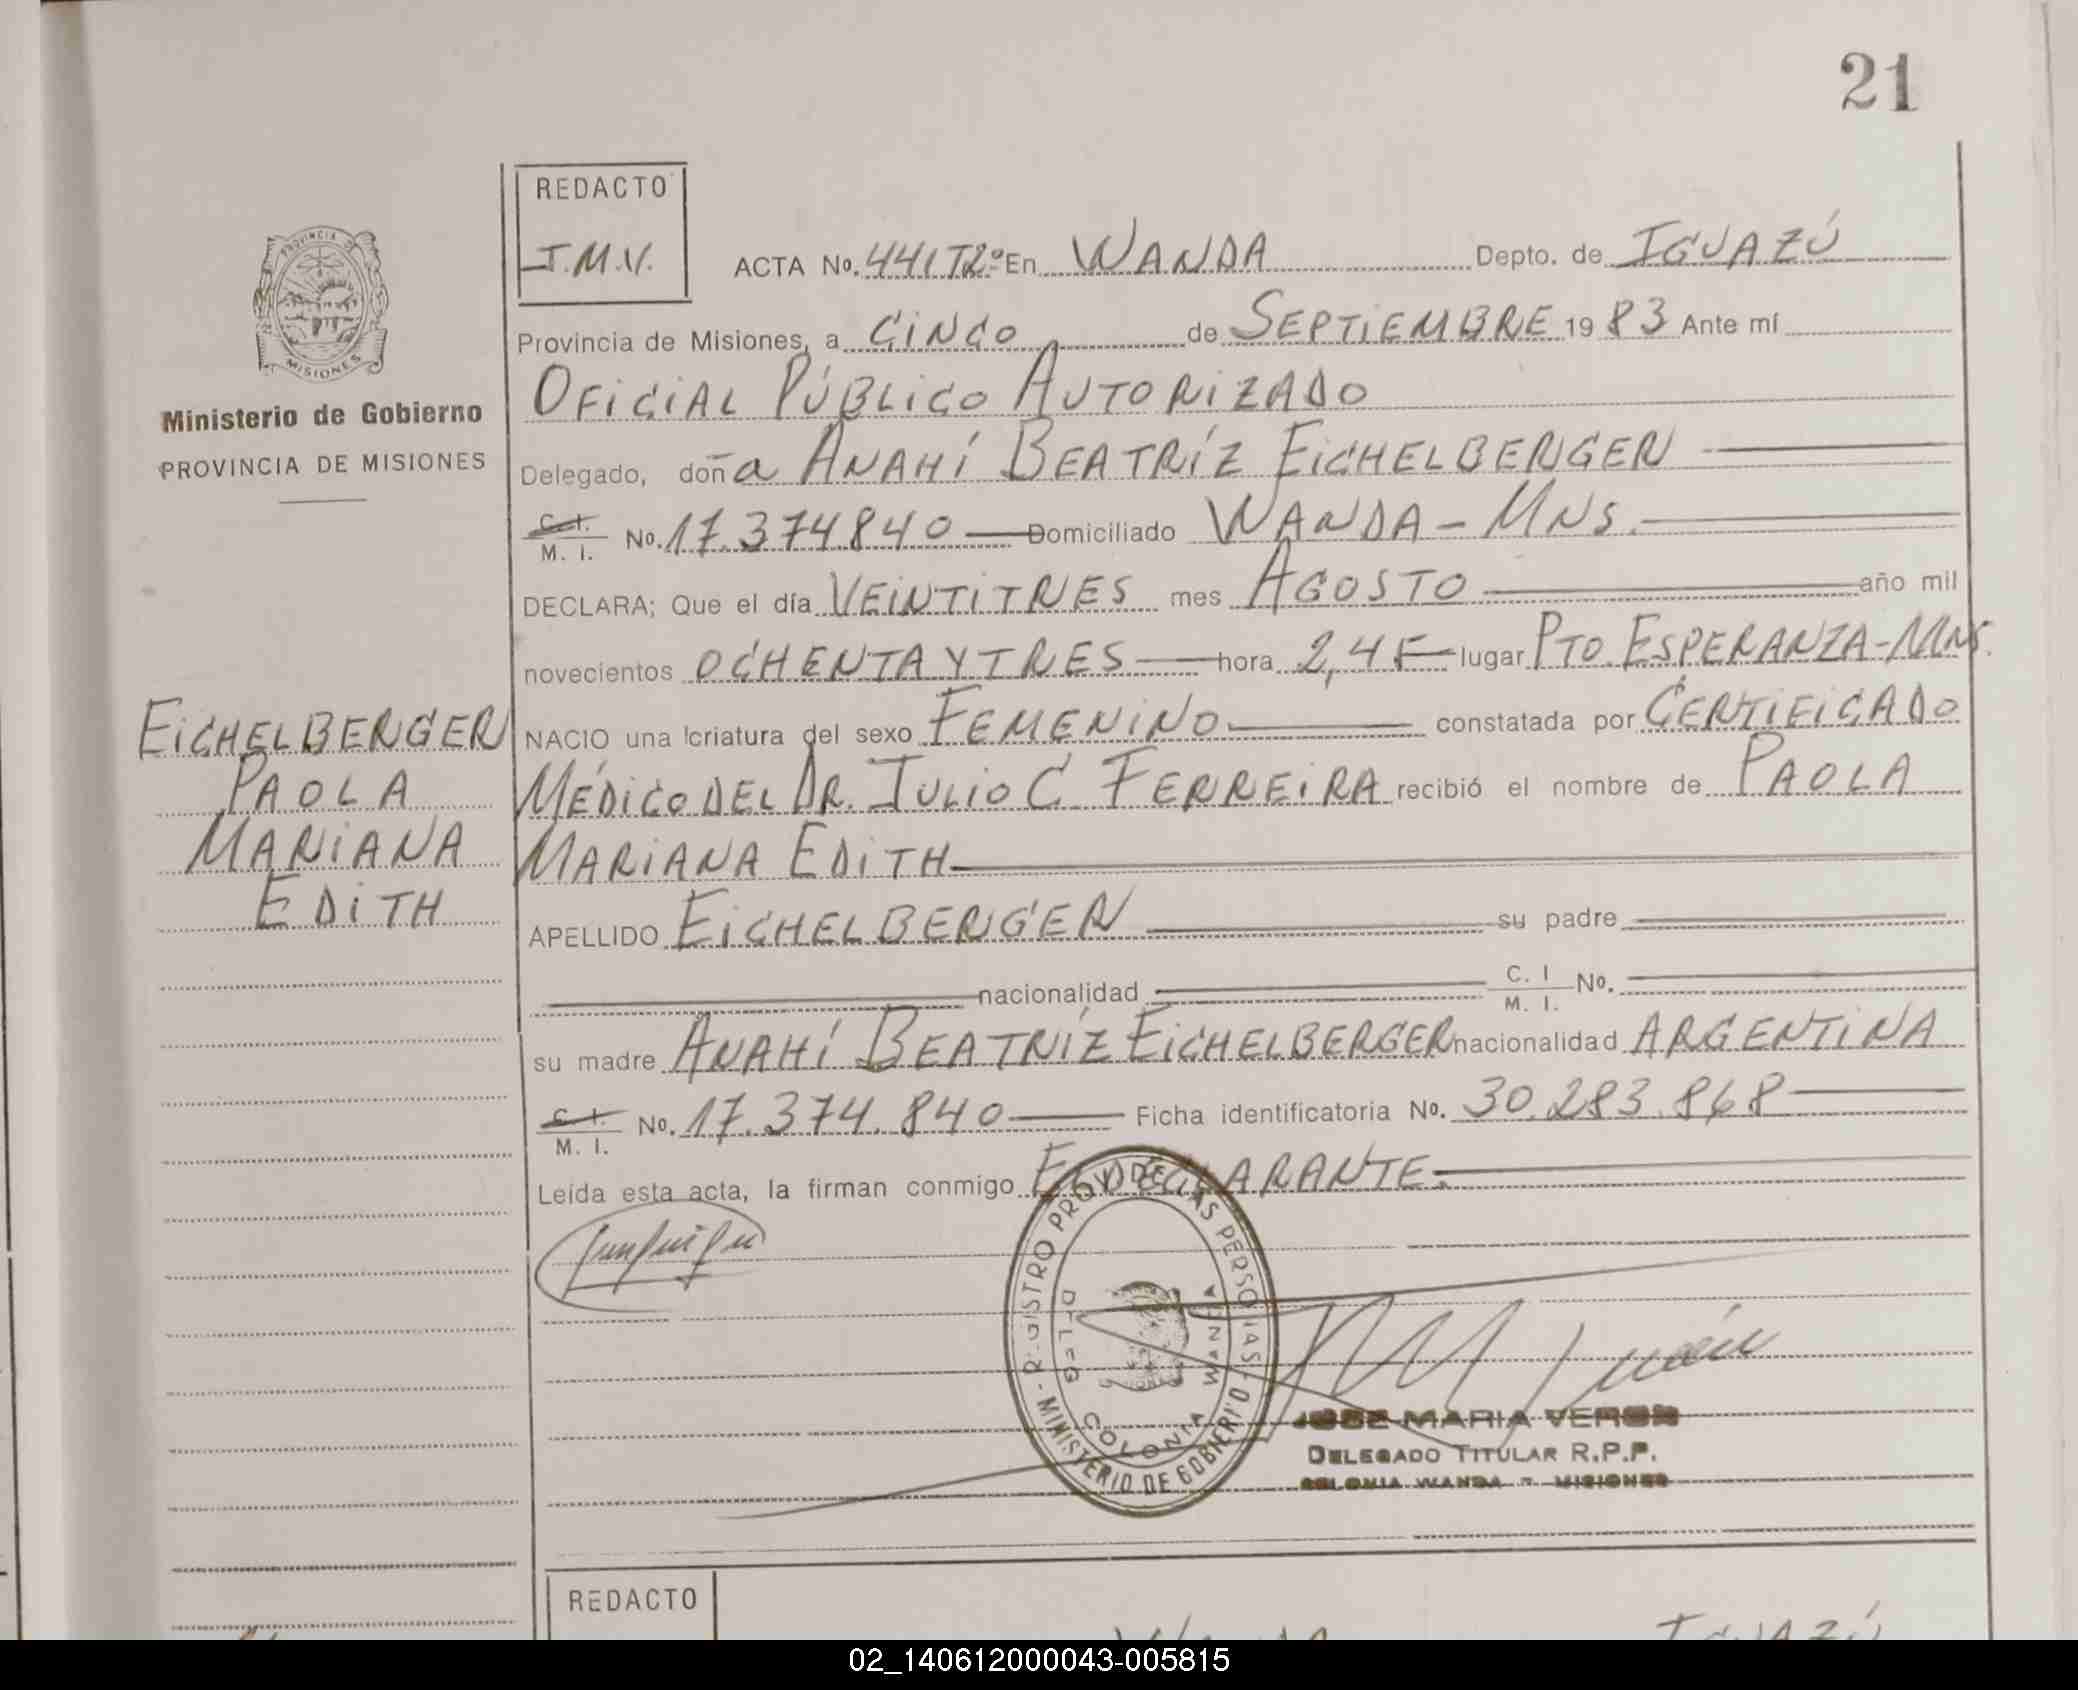 21
REDACTO
J.M.V.
ACTA No. 441T2º En WANDA Depto. de IGUAZÚ
PROVINCIA DE
MISIONES
Provincia de Misiones, a CINCO de SEPTIEMBRE 19 83 Ante mí
Ministerio de Gobierno
PROVINCIA DE MISIONES
OFICIAL PÚBLICO AUTORIZADO
Delegado, doña ANAHÍ BEATRÍZ EICHELBERGER
C. I.
M. I. No. 17.374.840 Domiciliado WANDA - MNS.
DECLARA; Que el día VEINTITRES mes AGOSTO año mil
novecientos OCHENTA Y TRES hora 2,45 lugar PTO. ESPERANZA - MNS.
EICHELBERGER
PAOLA
MARIANA
EDITH
NACIO una criatura del sexo FEMENINO constatada por CERTIFICADO
MÉDICO DEL DR. JULIO C. FERREIRA recibió el nombre de PAOLA
MARIANA EDITH
APELLIDO EICHELBERGER su padre
nacionalidad C. I
M. I. No.
su madre ANAHÍ BEATRÍZ EICHELBERGER nacionalidad ARGENTINA
C. I.
M. I. No. 17.374.840 Ficha identificatoria No. 30.283.868
Leída esta acta, la firman conmigo EL DECLARANTE.
REGISTRO PROV. DE LAS PERSONAS - MINISTERIO DE GOBIERNO
DELEG. COLONIA WANDA
JOSE MARIA VERON
DELEGADO TITULAR R.P.P.
COLONIA WANDA - MISIONES
REDACTO
WANDA IGUAZÚ
02_140612000043-005815